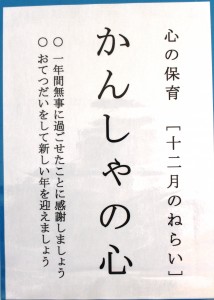 心の保育　[十二月のねらい]
かんしゃの心
○ 一年間無事に過ごせたことに感謝しましょう
○ おてつだいをして新しい年を迎えましょう